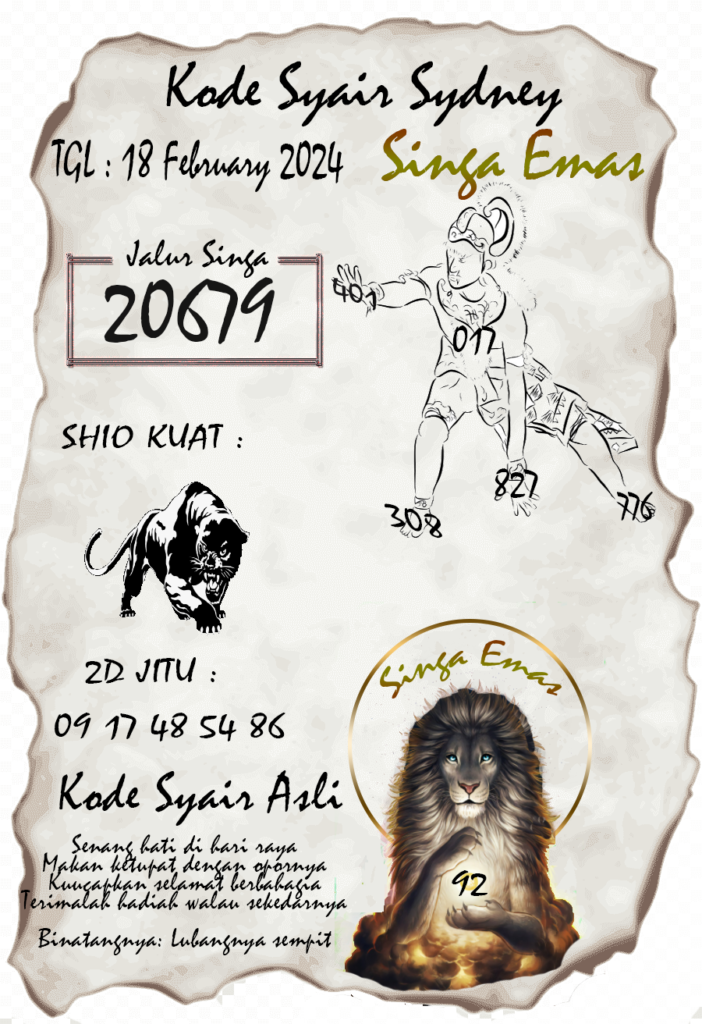 Kode Syair Sydney
TGL : 18 February 2024
Singa Emas
Jalur Singa
20679
401
017
827
308
776
SHIO KUAT :
2D JITU :
09 17 48 54 86
Singa Emas
92
Kode Syair Asli
Senang hati di hari raya
Makan ketupat dengan opornya
Kuucapkan selamat berbahagia
Terimalah hadiah walau sekedarnya
Binatangnya: Lubangnya sempit